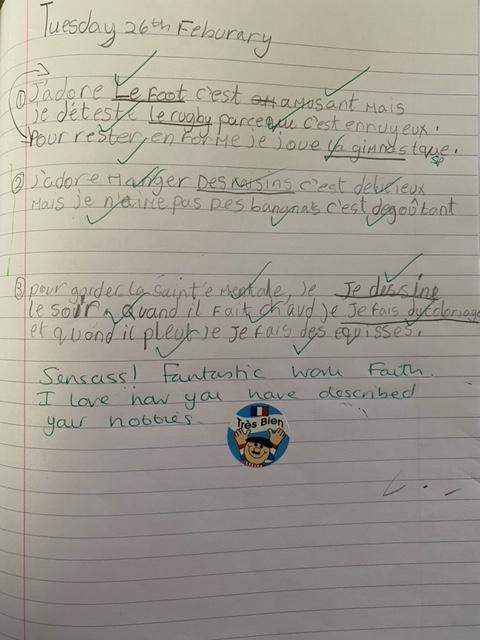 Tuesday 26th Feburary
① J'adore Le Foot c'est amusant mais
je déteste le rugby parceque c'est ennuyeux.
Pour rester en forme je joue la gimnastque. sp
② J'adore manger Des raisins c'est delicieux
mais je n'aime pas Des bangnas c'est degoûtant
③ pour garder la sainte mentale, je Je dessine
le soir, Quand il Fait chaud je Je fais du coloriage
et quond il pleut je Je fais des equisses.
Sensass! Fantastic work Faith.
I love how you have described
your hobbies.
Très Bien